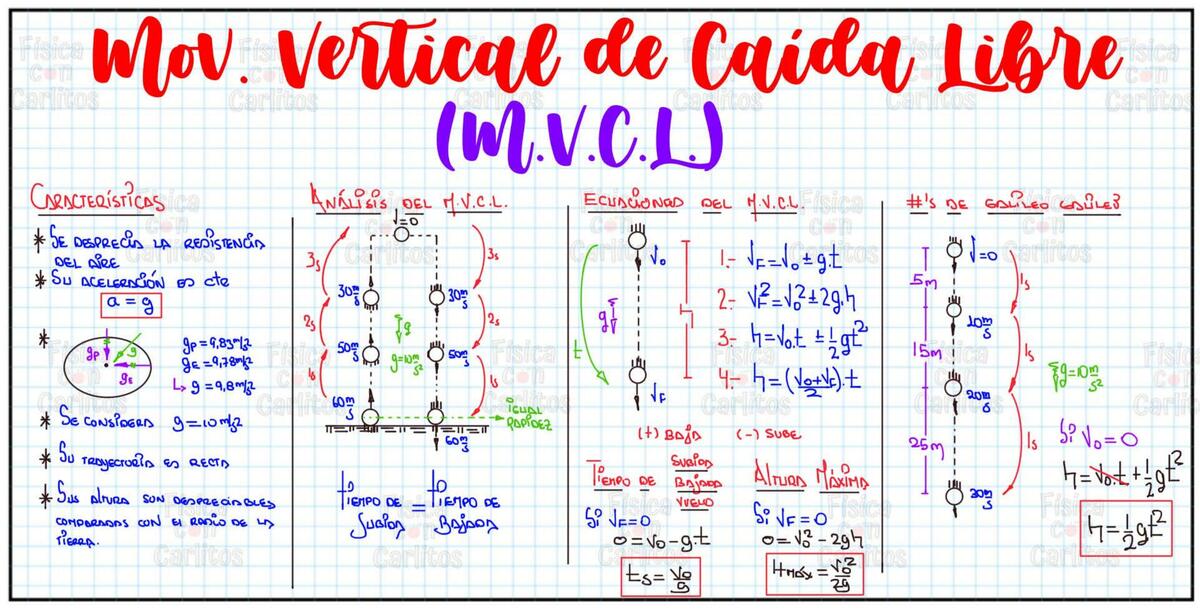 Mov. Vertical de Caída Libre
(M.V.C.L.)
CARACTERÍSTICAS
* SE DESPRECIA LA RESISTENCIA
DEL AIRE
* SU ACELERACIÓN ES cte
a = g
*
gP
g
gE
gP = 9,83m/s²
gE = 9,78m/s²
↳ g = 9,8m/s²
* SE CONSIDERA g = 10m/s²
* SU TRAYECTORIA ES RECTA
* SUS ALTURA SON DESPRECIABLES
COMPARADAS CON EL RADIO DE LA
TIERRA.
ANÁLISIS DEL M.V.C.L.
V=0
3s
3s
30m/s
30m/s
2s
2s
g
50m/s
50m/s
g=10m/s²
1s
1s
60m/s
IGUAL
RAPIDEZ
60m/s
TIEMPO DE SUBIDA = TIEMPO DE BAJADA
ECUACIONES DEL M.V.C.L.
Vo
g
t
h
VF
1.- VF = Vo ± gt
2.- VF² = Vo² ± 2g.h
3.- h = Vo.t ± 1/2 gt²
4.- h = (Vo+VF/2).t
(+) BAJA (-) SUBE
TIEMPO DE SUBIDA BAJADA VUELO
Si VF=0
0 = Vo - gt
ts = Vo/g
ALTURA MÁXIMA
Si VF=0
0 = Vo² - 2gh
HMÁX = Vo²/2g
#'S DE GALILEO GALILEI
V=0
5m
1s
10m/s
15m
1s
g=10m/s²
20m/s
25m
1s
30m/s
Si Vo=0
h = Vo.t + 1/2 gt²
h = 1/2 gt²
Física
con
Carlitos